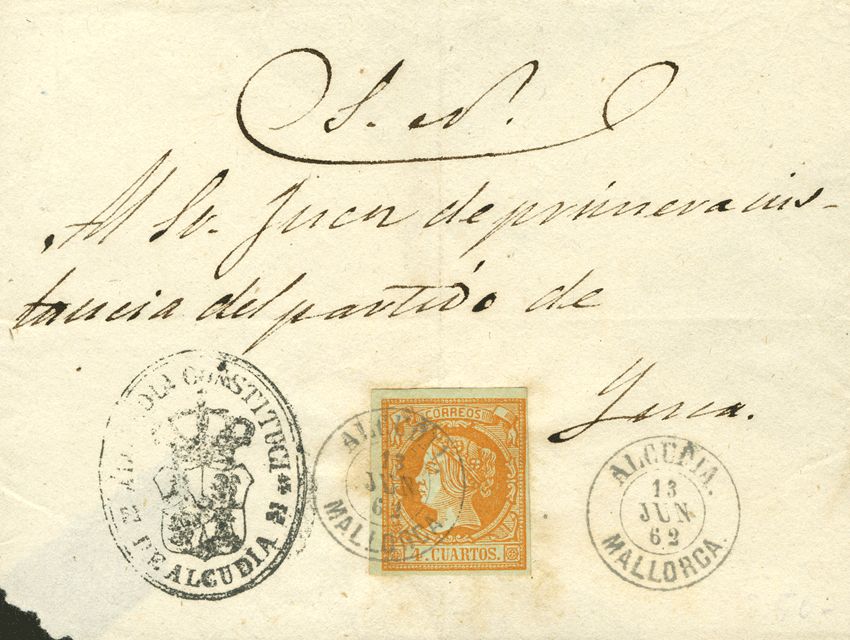 S. N.
Al Sr. Juez de primera ins-
tancia del partido de
Ynca.
ALCALDIA CONSTITUCI
DE ALCUDIA
CORREOS
4. CUARTOS.
ALCUDIA.
13
JUN
62
MALLORCA.
ALCUDIA.
13
JUN
62
MALLORCA.